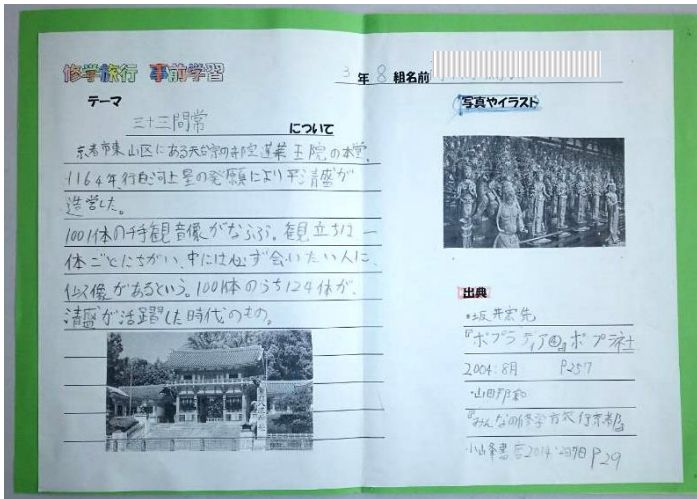 修学旅行 事前学習
3年8組名前
テーマ
三十三間常
について
京都市東山区にある天台宗の寺院蓮華王院の本堂。
1164年、行白河上皇の発願により平清盛が
造営した。
1001体の千手観音像がならぶ。観立ちは一
体ごとにちがい、中には必ず会いたい人に、
似像があるという。1001体のうち124体が、
清盛が活躍した時代のもの。
写真やイラスト
出典
・坂井宏先
『ポプラディア④』ポプラ社
2004.8月 P257
・山田邦和
小峰書店2014
P29